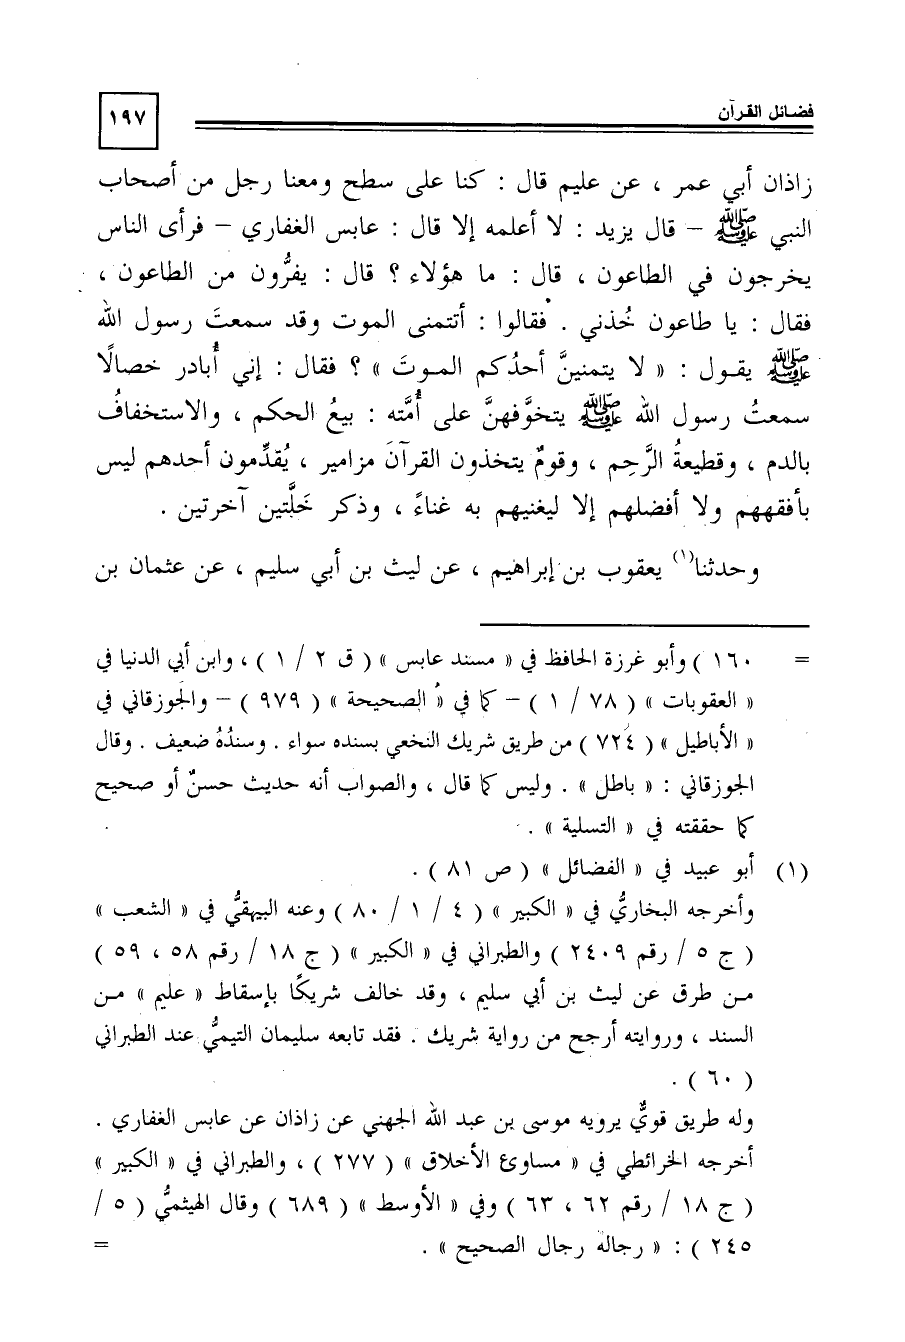 فضائل القرآن
١٩٧
زاذان أبي عمر ، عن عليم قال : كنا على سطح ومعنا رجل من أصحاب
النبي ﷺ – قال يزيد : لا أعلمه إلا قال : عابس الغفاري – فرأى الناس
يخرجون في الطاعون ، قال : ما هؤلاء ؟ قال : يفرُّون من الطاعون ،
فقال : يا طاعون خُذني . فقالوا : أتتمنى الموت وقد سمعتَ رسول الله
ﷺ يقول : « لا يتمنينَّ أحدُكم الموتَ » ؟ فقال : إني أُبادر خصالًا
سمعتُ رسول الله ﷺ يتخوَّفهنَّ على أُمَّته : بيعُ الحكم ، والاستخفافُ
بالدم ، وقطيعةُ الرَّحِم ، وقومٌ يتخذون القرآنَ مزامير ، يُقدِّمون أحدهم ليس
بأفقههم ولا أفضلهم إلا ليغنيهم به غناءً ، وذكر خَلَّتين آخرتين .
وحدثنا(١) يعقوب بن إبراهيم ، عن ليث بن أبي سليم ، عن عثمان بن
= ١٦٠ ) وأبو غرزة الحافظ في « مسند عابس » ( ق ٢ / ١ ) ، وابن أبي الدنيا في
« العقوبات » ( ٧٨ / ١ ) – كما في « الصحيحة » ( ٩٧٩ ) – والجوزقاني في
« الأباطيل » ( ٧٢٤ ) من طريق شريك النخعي بسنده سواء . وسندُهُ ضعيف . وقال
الجوزقاني : « باطل » . وليس كما قال ، والصواب أنه حديث حسنٌ أو صحيح
كما حققته في « التسلية » .
(١) أبو عبيد في « الفضائل » ( ص ٨١ ) .
وأخرجه البخاريُّ في « الكبير » ( ٤ / ١ / ٨٠ ) وعنه البيهقيُّ في « الشعب »
( ج ٥ / رقم ٢٤٠٩ ) والطبراني في « الكبير » ( ج ١٨ / رقم ٥٨ ، ٥٩ )
من طرق عن ليث بن أبي سليم ، وقد خالف شريكًا بإسقاط « عليم » من
السند ، وروايته أرجح من رواية شريك . فقد تابعه سليمان التيميُّ عند الطبراني
( ٦٠ ) .
وله طريق قويٌّ يرويه موسى بن عبد الله الجهني عن زاذان عن عابس الغفاري .
أخرجه الخرائطي في « مساوئ الأخلاق » ( ٢٧٧ ) ، والطبراني في « الكبير »
( ج ١٨ / رقم ٦٢ ، ٦٣ ) وفي « الأوسط » ( ٦٨٩ ) وقال الهيثميُّ ( ٥ /
٢٤٥ ) : « رجاله رجال الصحيح » . =